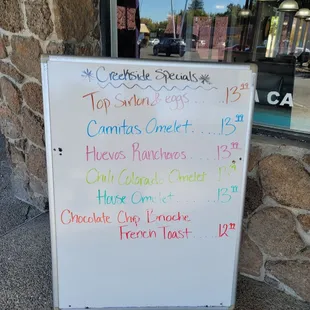 * Creekside Specials *
Top Sirloin & eggs .... 13.
Carnitas Omelet ..... 13.
Huevos Rancheros .... 13.
Chili Colorado Omelet
House Omelet ....... 13.
Chocolate Chip Brioche
French Toast ..... 12.
CA